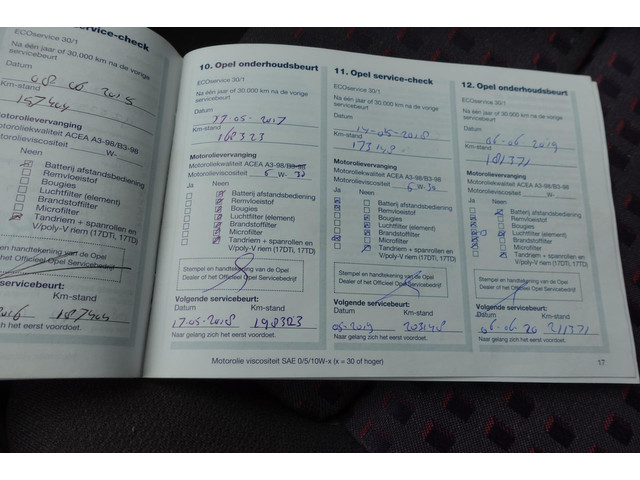 service-check
ECOservice 30/1
Na één jaar of 30.000 km na de vorige
servicebeurt
08 06 2015
Km-stand
157404
Motorolievervanging
Motoroliekwaliteit ACEA A3-98/B3-98
Motorolieviscositeit W-
Neen
Batterij afstandsbediening
Remvloeistof
Bougies
Luchtfilter (element)
Brandstoffilter
Microfilter
Tandriem + spanrollen en
V/poly-V riem (17DTi, 17TD)
Stempel en handtekening van de Opel
Dealer of het Officieel Opel Servicebedrijf
servicebeurt:
Km-stand
2016 187404
langs zich het eerst voordoet.
10. Opel onderhoudsbeurt
ECOservice 30/1
Na één jaar of 30.000 km na de vorige
servicebeurt
Datum
17-05-2017
Km-stand
168323
Motorolievervanging
Motoroliekwaliteit ACEA A3-98/B3-98
Motorolieviscositeit 5 W- 30
Ja Neen
Batterij afstandsbediening
Remvloeistof
Bougies
Luchtfilter (element)
Brandstoffilter
Microfilter
Tandriem + spanrollen en
V/poly-V riem (17DTi, 17TD)
Stempel en handtekening van de Opel
Dealer of het Officieel Opel Servicebedrijf
Volgende servicebeurt:
Datum Km-stand
17-05-2018 198323
Naar gelang zich het eerst voordoet.
11. Opel service-check
ECOservice 30/1
Na één jaar of 30.000 km na de vorige
servicebeurt
Datum
14-05-2018
Km-stand
173148
Motorolievervanging
Motoroliekwaliteit ACEA A3-98/B3-98
Motorolieviscositeit 5 W- 30
Ja Neen
Batterij afstandsbediening
Remvloeistof
Bougies
Luchtfilter (element)
Brandstoffilter
Microfilter
Tandriem + spanrollen en
V/poly-V riem (17DTi, 17TD)
Stempel en handtekening van de Opel
Dealer of het Officieel Opel Servicebedrijf
Volgende servicebeurt:
Datum Km-stand
05-2019 203148
Naar gelang zich het eerst voordoet.
12. Opel onderhoudsbeurt
ECOservice 30/1
Na één jaar of 30.000 km na de vorige
servicebeurt
Datum
06-06-2019
Km-stand
181371
Motorolievervanging
Motoroliekwaliteit ACEA A3-98/B3-98
Motorolieviscositeit W-
Ja Neen
Batterij afstandsbediening
Remvloeistof
Bougies
Luchtfilter (element)
Brandstoffilter
Microfilter
Tandriem + spanrollen en
V/poly-V riem (17DTi, 17TD)
Stempel en handtekening van de Opel
Dealer of het Officieel Opel Servicebedrijf
Volgende servicebeurt:
Datum Km-stand
06-06-20 211371
Naar gelang zich het eerst voordoet.
Motorolie viscositeit SAE 0/5/10W-x (x = 30 of hoger)
17